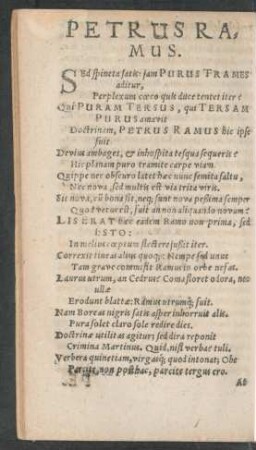 PETRUS RA,
MUS.
SEd spineta satis: jam PURUS TRAMES
aditur,
Perplexum cæco quis duce tentet iter?
Qui PURAM TERSUS, qui TERSAM
PURUS amavit
Doctrinam, PETRUS RAMUS hic ipse
fuit
Devius ambages, & inhospita tesqua sequeris?
Hic planam puro tramite carpe viam.
Quippe nec obscuro latet hæc nunc semita saltu,
Nec nova, sed multis est via trita viris.
Sit nova, cũ bona sit, neq; sunt nova pessima semper
Quod vetus est, fuit an non aliquando novum?
LISERAT hac eadem Ramo non prima, sed
ESTO:
In melius cœptum flectere jussit iter.
Correxit lineas alius quoq;: Nempe sed unus
Tam grave commisit Ramus in orbe nefas.
Laurus utrum, an Cedrus? Coma floret odora, nec
ullæ
Erodunt blattæ: Ramus utrumq; fuit.
Nam Boreas nigris satis asper inhorruit alis.
Pura solet claro sole redire dies.
Doctrinæ utilitas agitur: sed dira reponit
Crimina Martinus. Quid, nisi verba: tuli.
Verbera quinetiam, virgasq; quod intonat; Ohe
Parcite, non posthac, parcite tergus ero.
At